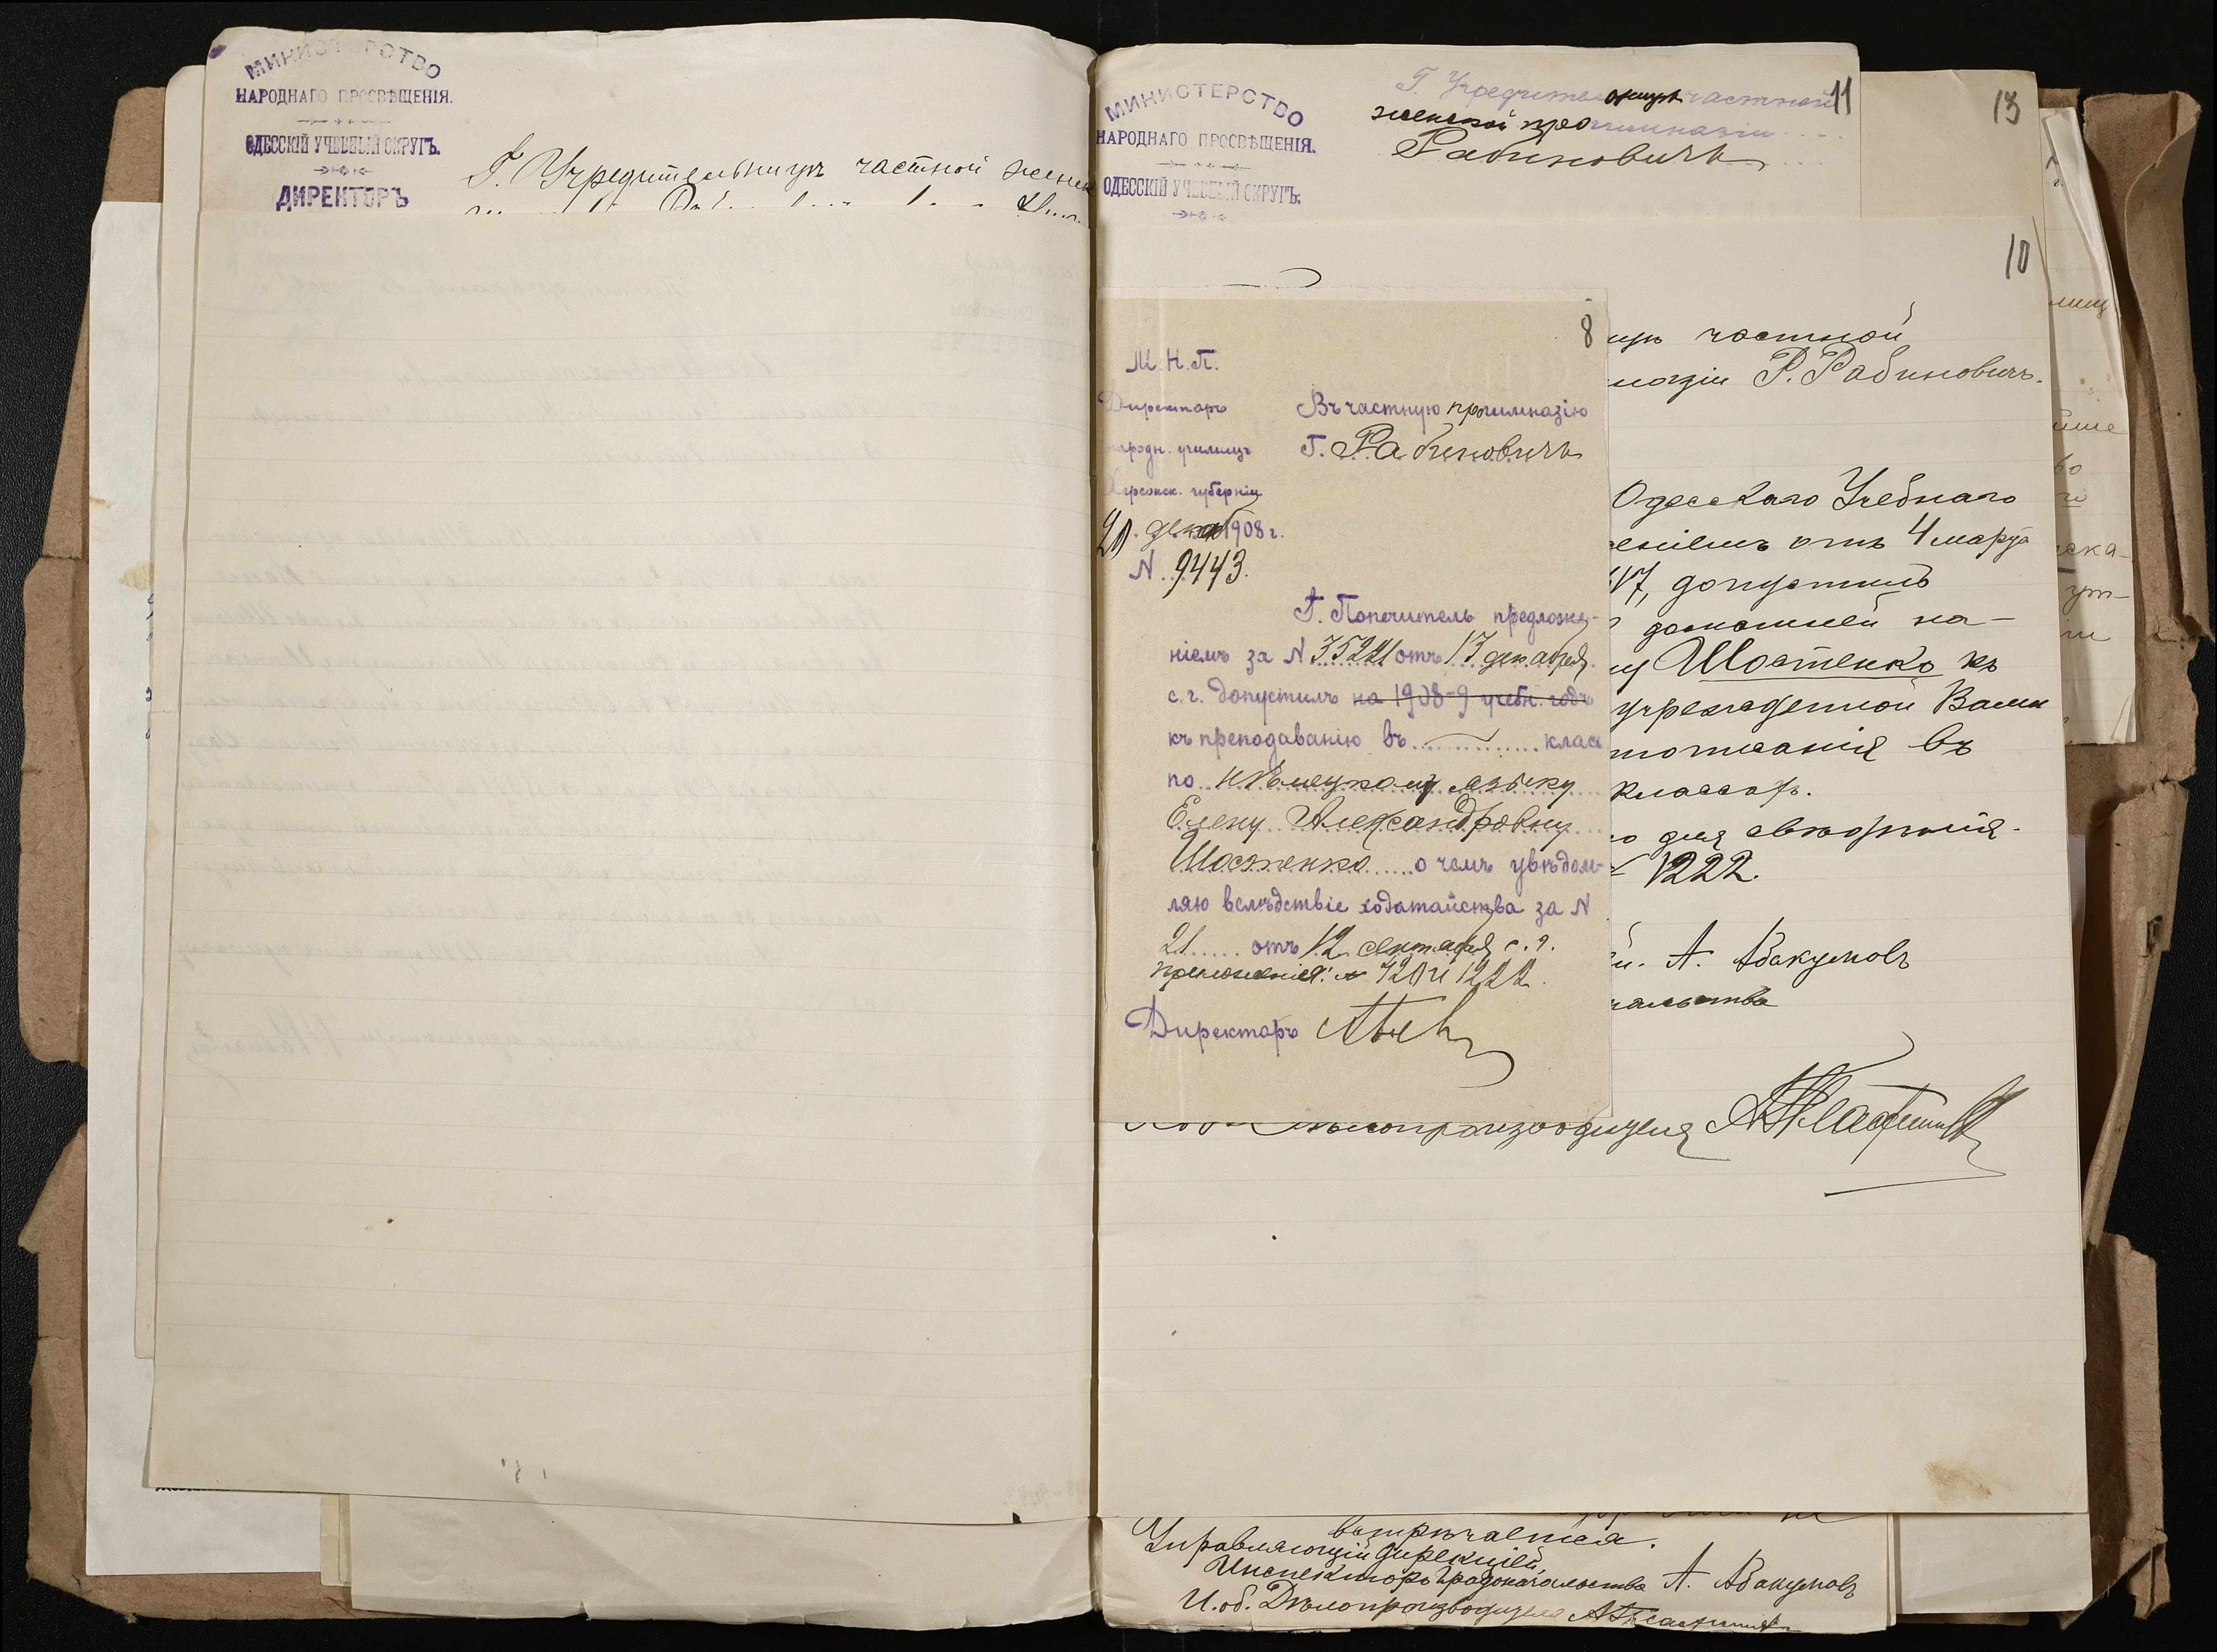 МИНИСТЕРСТВО
НАРОДНАГО ПРОСВѢЩЕНІЯ.
ОДЕССКІЙ УЧЕБНЫЙ ОКРУГЪ.
ДИРЕКТОРЪ
Г. Учредительницѣ частной женск
МИНИСТЕРСТВО
НАРОДНАГО ПРОСВѢЩЕНІЯ.
ОДЕССКІЙ УЧЕБНЫЙ ОКРУГЪ.
Г. Учредительницѣ частной
женской прогимназіи
Рабиновичъ
11
13
10
цѣ частной
назіи Р. Рабиновичъ.
Одесскаго Учебнаго
еніемъ отъ 4 марта
допустилъ
домашней на-
цу Шостенко къ
учрежденной Вами
чистописанія въ
классахъ.
о для свѣдѣнія.
№ 1222.
й. А. Абакумовъ
чальства
Дѣлопроизводителя
8
М. Н. П.
Директоръ
народн. училищъ
Херсонск. губерніи
20 декаб 1908 г.
N. 9443.
Въ частную прогимназію
Г. Рабиновичъ
Г. Попечитель предложе-
ніемъ за N 35221 отъ 17 декабря
с. г. допустилъ на 1908-9 учебн. годъ
къ преподаванію въ класс
по нѣмецкому языку
Елену Александровну
Шостенко о чемъ увѣдом-
ляю вслѣдствіе ходатайства за N
21 отъ 12 сентября с. г.
приложенія: № 720 и 1222.
Директоръ
встрѣчается.
Управляющій Дирекціей,
Инспекторъ Градоначальства А. Абакумовъ
И. об. Дѣлопроизводителя